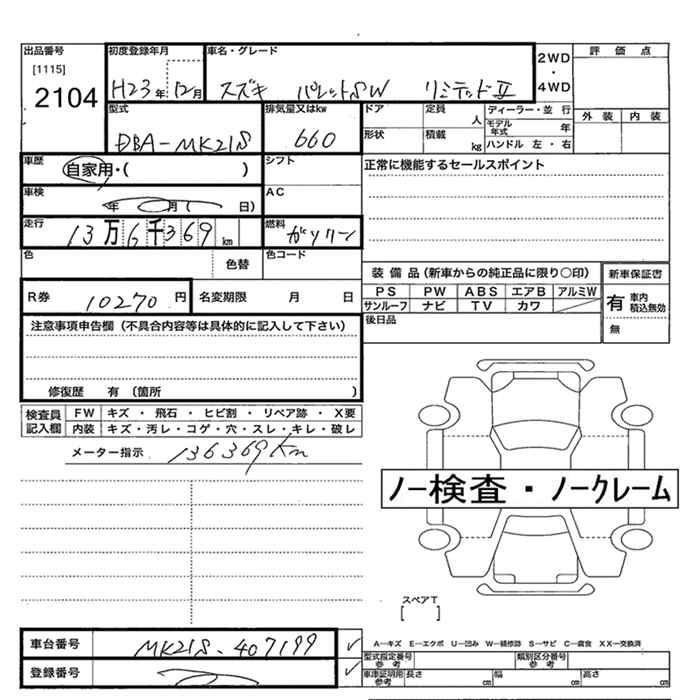 出品番号 初度登録年月 車名・グレード 2WD・4WD 評価点
[1115]
2104
H23年12月 スズキ パレットSW リミテッドⅡ
型式 排気量又はkw ドア 定員 人 ディーラー・並行 外装 内装
DBA-MK21S 660 形状 積載 kg モデル年式 年
ハンドル 左・右
車歴 シフト 正常に機能するセールスポイント
自家用・( )
車検 AC
年 月( 日)
走行 燃料
13万6千369km ガソリン
色 色替 色コード
装備品(新車からの純正品に限り○印) 新車保証書
PS PW ABS エアB アルミW 有 車内積込無効
R券 10270円 名変期限 月 日 サンルーフ ナビ TV カワ 無
後日品
注意事項申告欄(不具合内容等は具体的に記入して下さい)
修復歴 有(箇所 )
検査員記入欄 FW キズ・飛石・ヒビ割・リペア跡・X要
内装 キズ・汚レ・コゲ・穴・スレ・キレ・破レ
メーター指示 136369Km
ノー検査・ノークレーム
スペアT
[ ]
車台番号 MK21S-407199
A―キズ E―エクボ U―凹み W―補修跡 S―サビ C―腐食 XX―交換済
型式指定番号 参考 類別区分番号 参考
登録番号
車庫証明用 参考 長さ cm 幅 cm 高さ cm